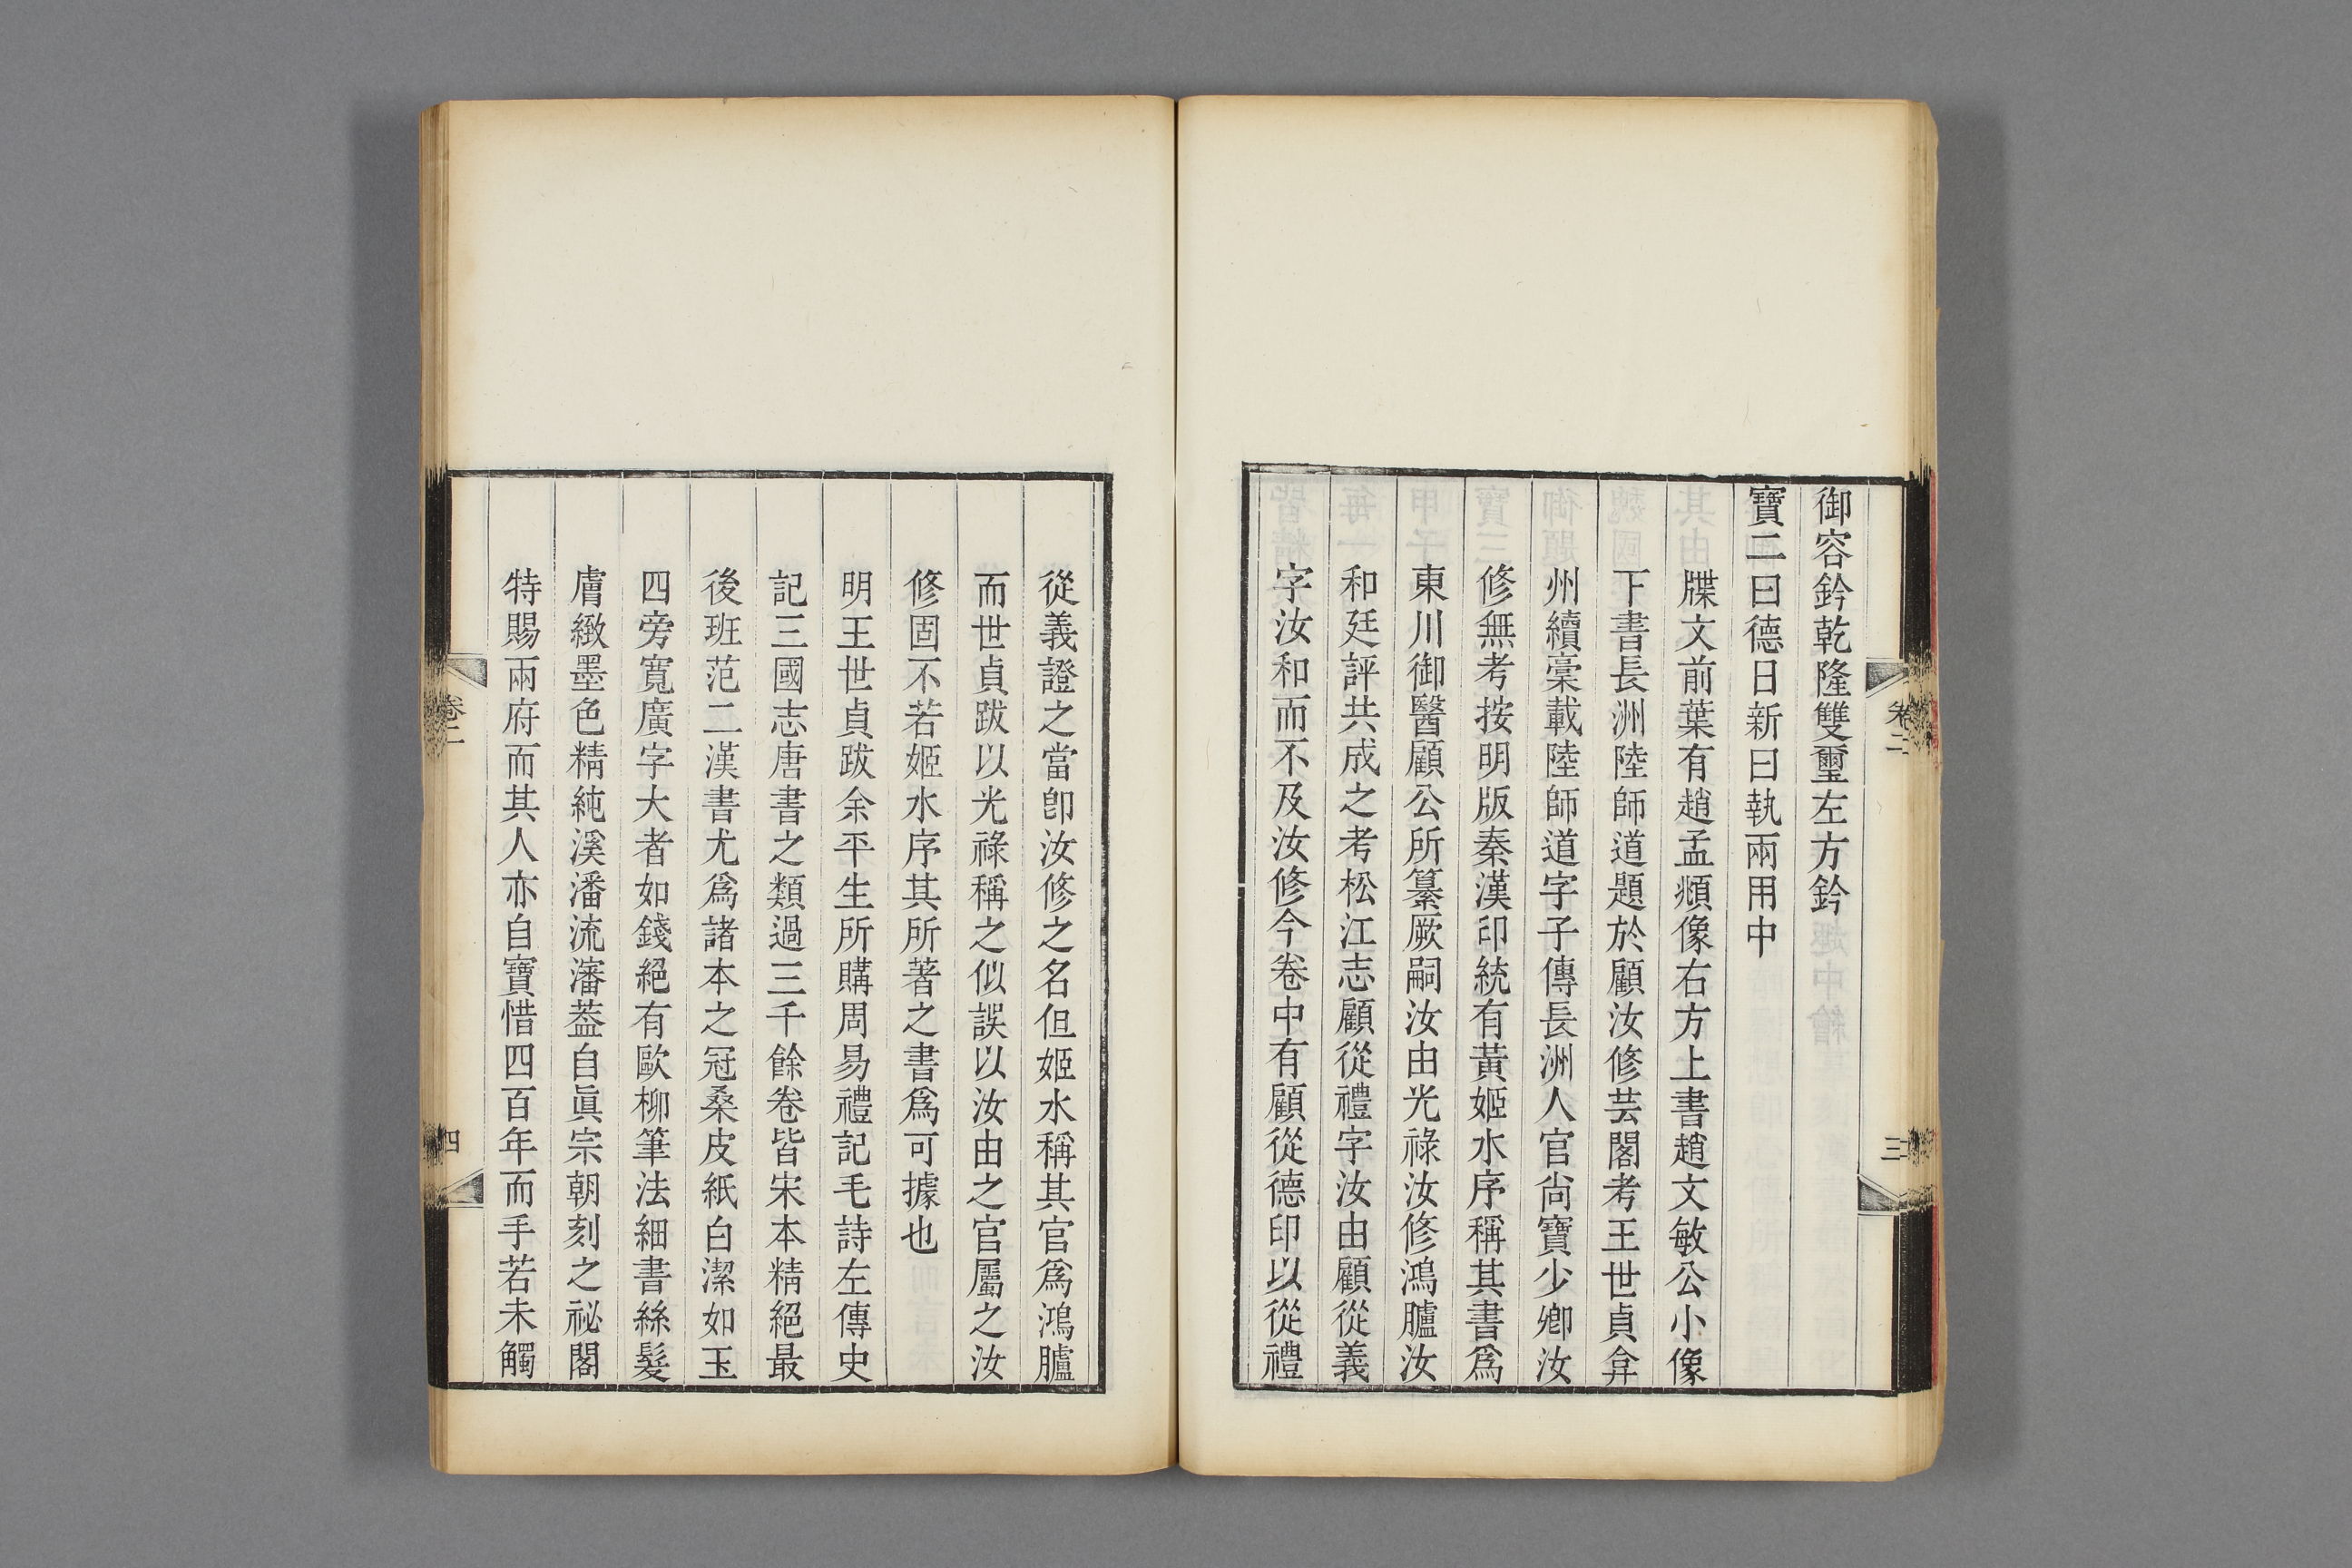 御容鈐乾隆雙璽左方鈐
寶二曰德日新曰執兩用中
牒文前葉有趙孟頫像右方上書趙文敏公小像
下書長洲陸師道題於顧汝修芸閣考王世貞弇
州續稾載陸師道字子傳長洲人官尙寶少卿汝
修無考按明版秦漢印統有黃姬水序稱其書爲
東川御醫顧公所纂厥嗣汝由光祿汝修鴻臚汝
和廷評共成之考松江志顧從禮字汝由顧從義
字汝和而不及汝修今卷中有顧從德印以從禮
卷二
三
從義證之當卽汝修之名但姬水稱其官爲鴻臚
而世貞跋以光祿稱之似誤以汝由之官屬之汝
修固不若姬水序其所著之書爲可據也
明王世貞跋余平生所購周易禮記毛詩左傳史
記三國志唐書之類過三千餘卷皆宋本精絕最
後班范二漢書尤爲諸本之冠桑皮紙白潔如玉
四旁寬廣字大者如錢絕有歐柳筆法細書絲髮
膚緻墨色精純溪潘流瀋葢自眞宗朝刻之祕閣
特賜兩府而其人亦自寶惜四百年而手若未觸
卷二
四